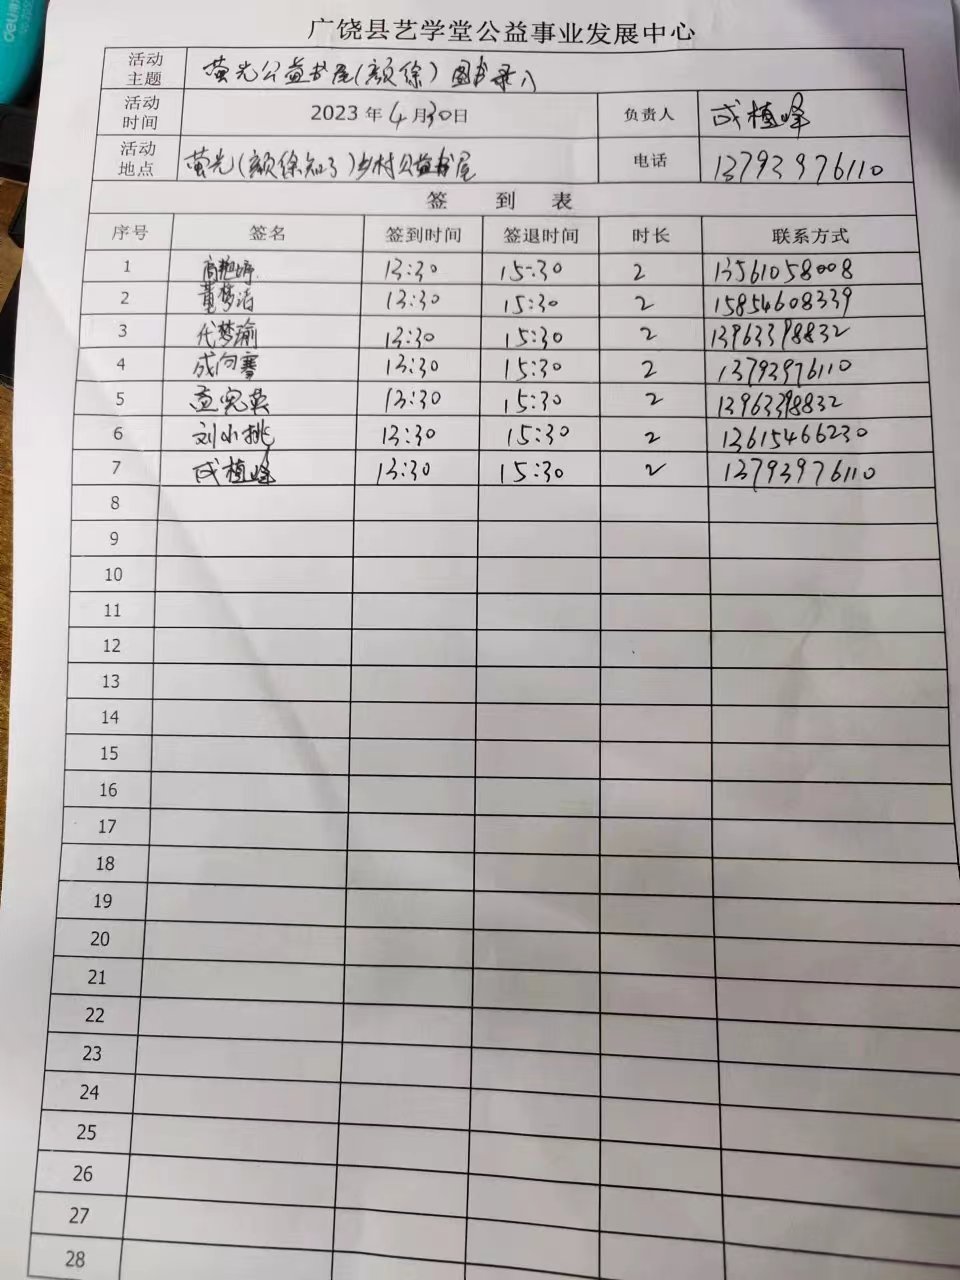 广饶县艺学堂公益事业发展中心
活动主题 萤光公益书屋(颜徐)图书录入
活动时间 2023年4月30日 负责人 成植峰
活动地点 萤光(颜徐知了)乡村公益书屋 电话 13793976110
签到表
序号 签名 签到时间 签退时间 时长 联系方式
1 高艳婷 13:30 15:30 2 13561058008
2 董梦洁 13:30 15:30 2 15854608339
3 代梦瑜 13:30 15:30 2 13963398832
4 成向赛 13:30 15:30 2 13793976110
5 孟宪英 13:30 15:30 2 13963398832
6 刘小桃 13:30 15:30 2 13615466230
7 成植峰 13:30 15:30 2 13793976110
8
9
10
11
12
13
14
15
16
17
18
19
20
21
22
23
24
25
26
27
28